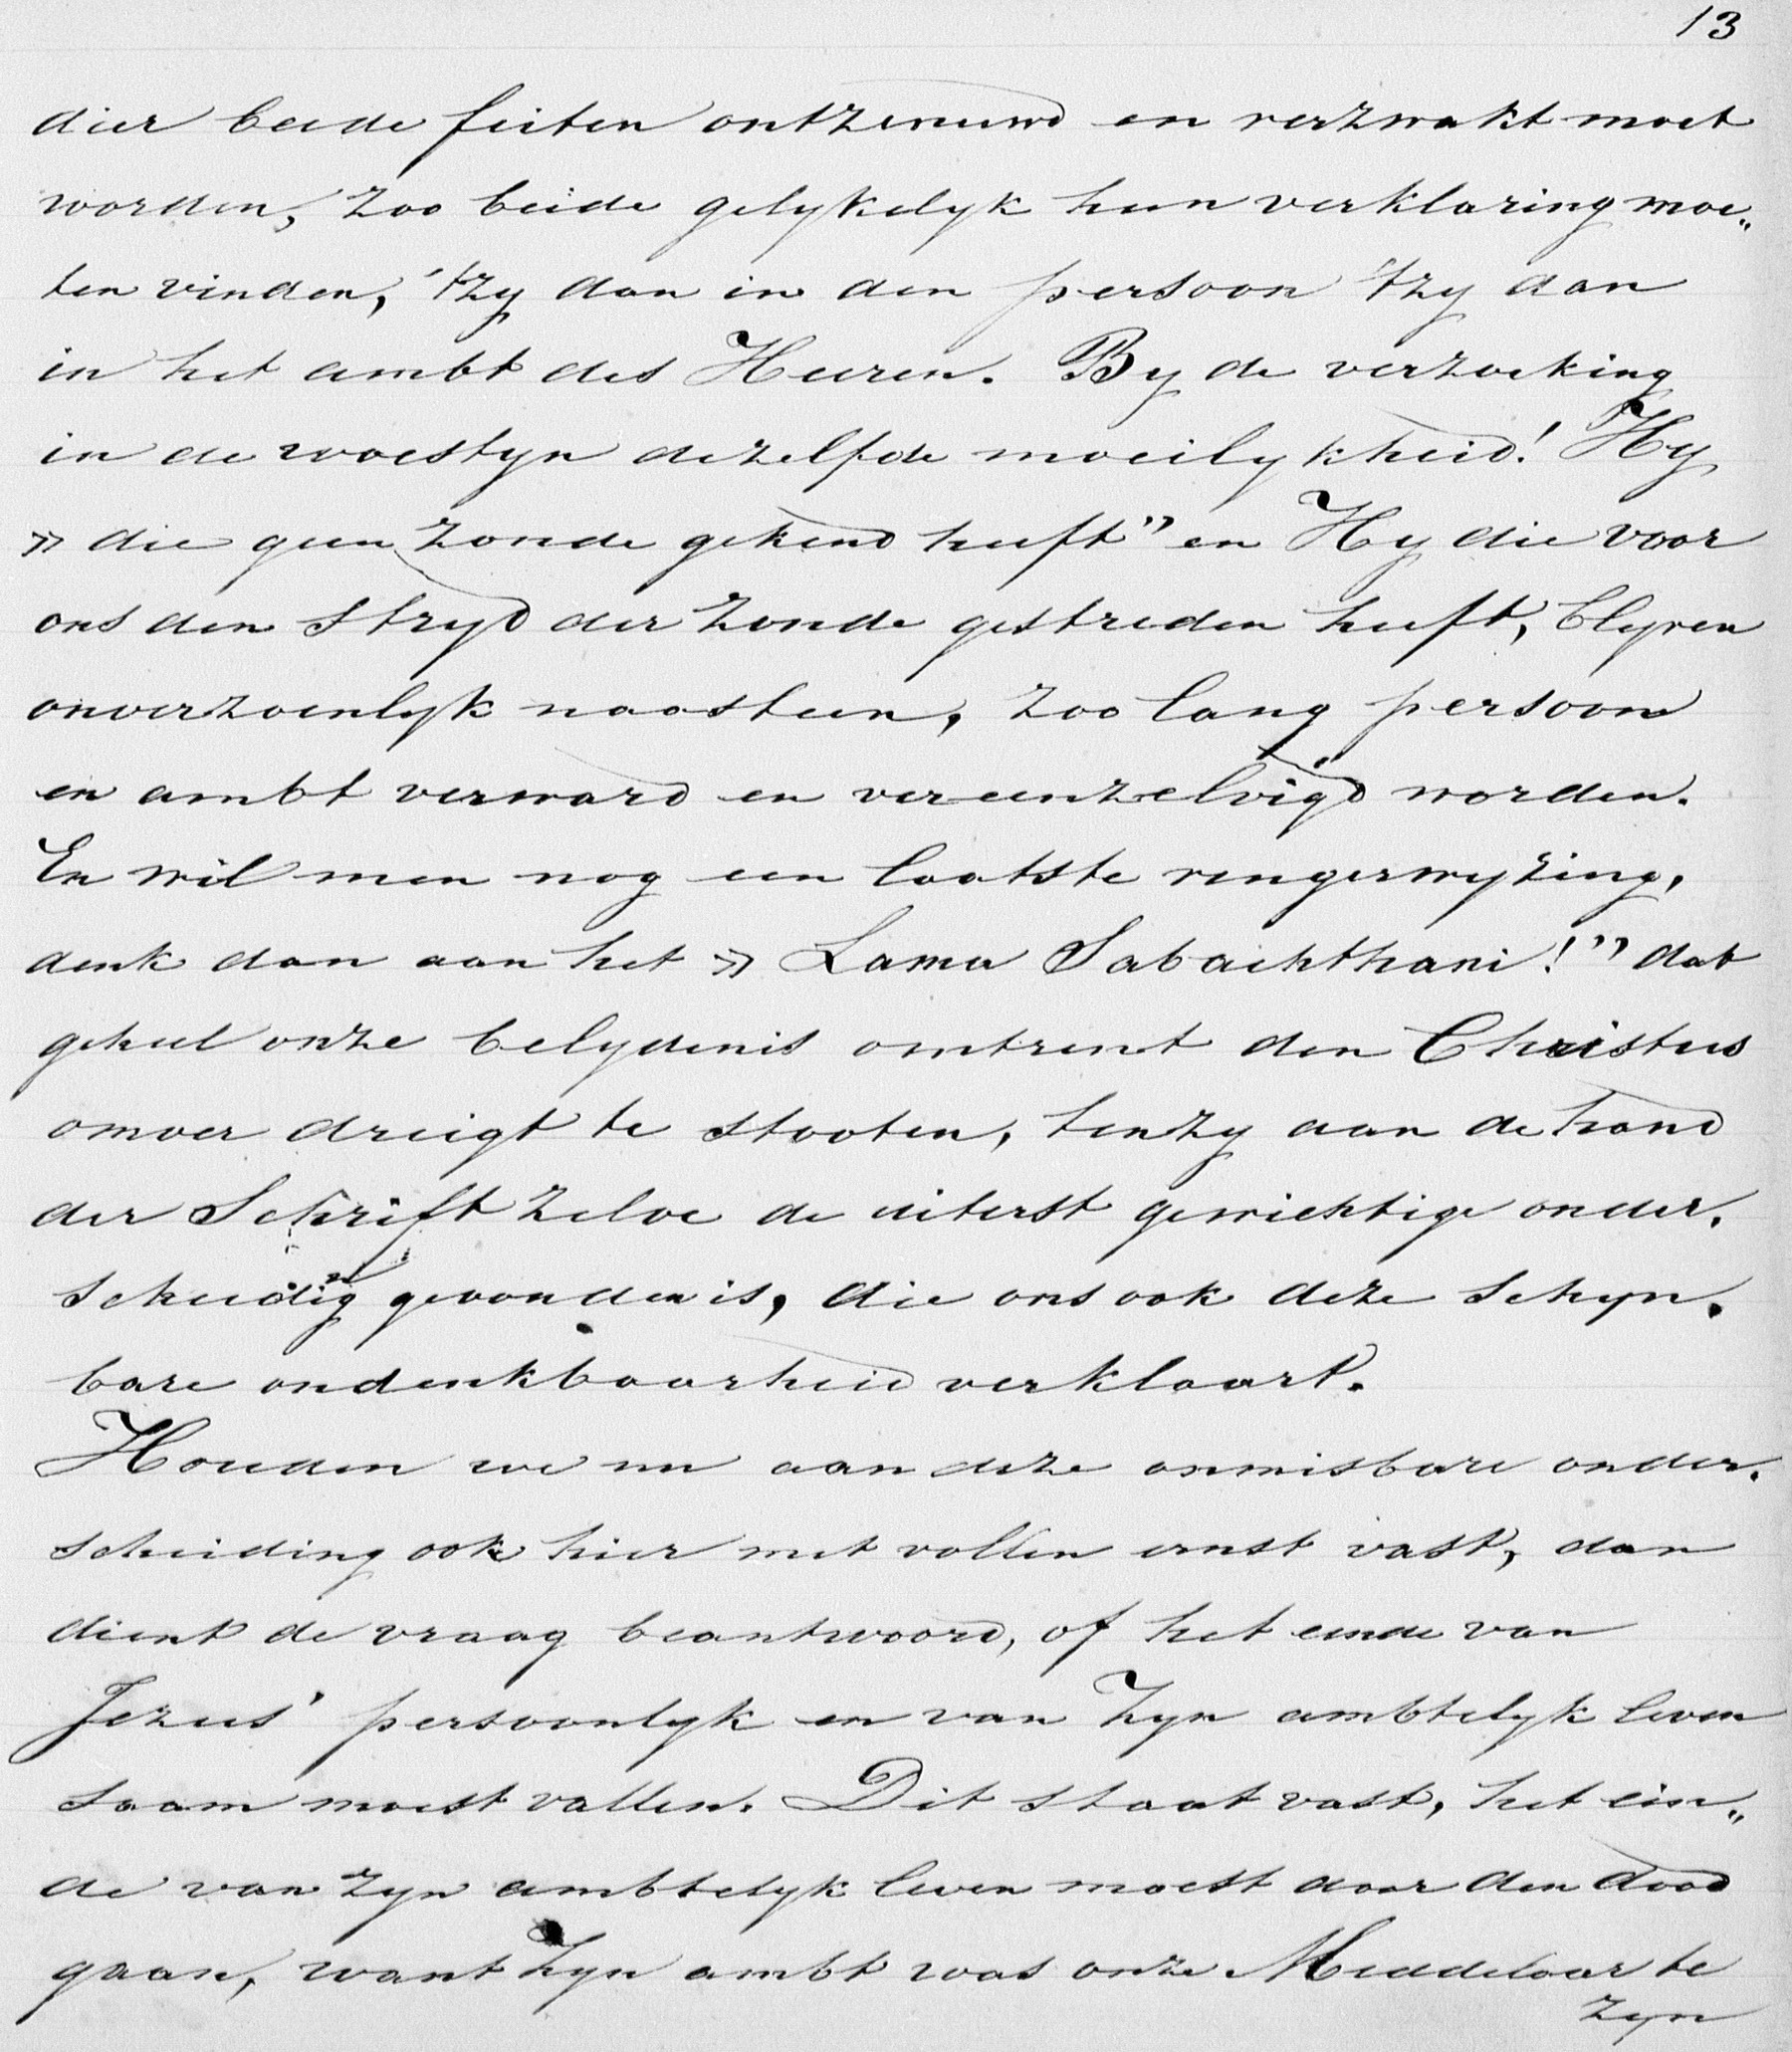 13
dier beide feiten ontzenuwd en verzwakt moet
worden, zoo beide gelykelyk hun verklaring moe„
ten vinden, 'tzy dan in den persoon 'tzy dan
in het ambt des Heeren. By de verzoeking
in de woestyn dezelfde moeilykheid! Hy
» die geen zonde gekend heeft” en Hy die voor
ons den stryd der zonde gestreden heeft, blyven
onverzoenlyk naasteen, zoo lang persoon
en ambt verward en vereenzelvigd worden.
En wil men nog een laatste vingerwyzing,
denk dan aan het » Lama Sabachthani!” dat
geheel onze belydenis omtrent den Christus
omver dreigt te stooten, tenzy aan de hand
der Schrift zelve de uiterst gewichtige onder.
scheidig gevonden is, die ons ook deze schyn.
bare ondenkbaarheid verklaart.
Houden we nu aan deze onmisbare onder.
scheiding ook hier met vollen ernst vast, dan
dient de vraag beantwoord, of het einde van
Jezus' persoonlyk en van Zyn ambtelyk leven
saam moest vallen. Dit staat vast, het ein„
de van zyn ambtelyk leven moest door den dood
gaan, want Zyn ambt was onze Middelaar te
zyn